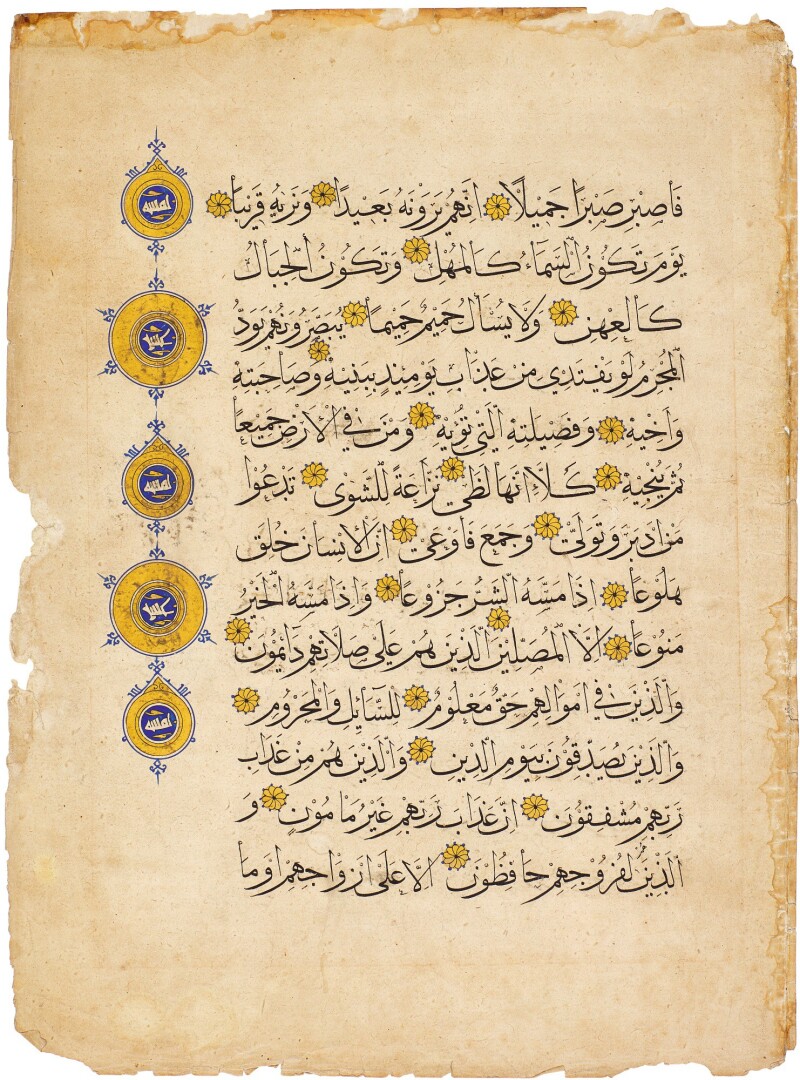 فَاصْبِرْ صَبْرًا جَمِيلًا اِنَّهُمْ يَرَوْنَهُ بَعِيدًا وَنَرٰيهُ قَرِيبًا
يَوْمَ تَكُونُ السَّمَاءُ كَالْمُهْلِ وَتَكُونُ الْجِبَالُ
كَالْعِهْنِ وَلَا يَسْأَلُ حَمِيمٌ حَمِيمًا يُبَصَّرُونَهُمْ يَوَدُّ
الْمُجْرِمُ لَوْ يَفْتَدِي مِنْ عَذَابِ يَوْمِيذٍ بِبَنِيهِ وَصَاحِبَتِهِ
وَاَخِيهِ وَفَصِيلَتِهِ الَّتِي تُؤْيِهِ وَمَنْ فِي الْاَرْضِ جَمِيعًا
ثُمَّ يُنْجِيهِ كَلَّا اِنَّهَا لَظَى نَزَّاعَةً لِلشَّوَى تَدْعُوا
مَنْ اَدْبَرَ وَتَوَلَّى وَجَمَعَ فَاَوْعَى اِنَّ الْاِنْسَانَ خُلِقَ
هَلُوعًا اِذَا مَسَّهُ الشَّرُّ جَزُوعًا وَاِذَا مَسَّهُ الْخَيْرُ
مَنُوعًا اِلَّا الْمُصَلِّينَ الَّذِينَ هُمْ عَلَى صَلَاتِهِمْ دَائِمُونَ
وَالَّذِينَ فِي اَمْوَالِهِمْ حَقٌّ مَعْلُومٌ لِلسَّائِلِ وَالْمَحْرُومِ
وَالَّذِينَ يُصَدِّقُونَ بِيَوْمِ الدِّينِ وَالَّذِينَ هُمْ مِنْ عَذَابِ
رَبِّهِمْ مُشْفِقُونَ اِنَّ عَذَابَ رَبِّهِمْ غَيْرُ مَامُونٍ وَ
الَّذِينَ لِفُرُوجِهِمْ حَافِظُونَ اِلَّا عَلَى اَزْوَاجِهِمْ اَوْ مَا
خمسه
عشر
خمسه
عشر
خمسه